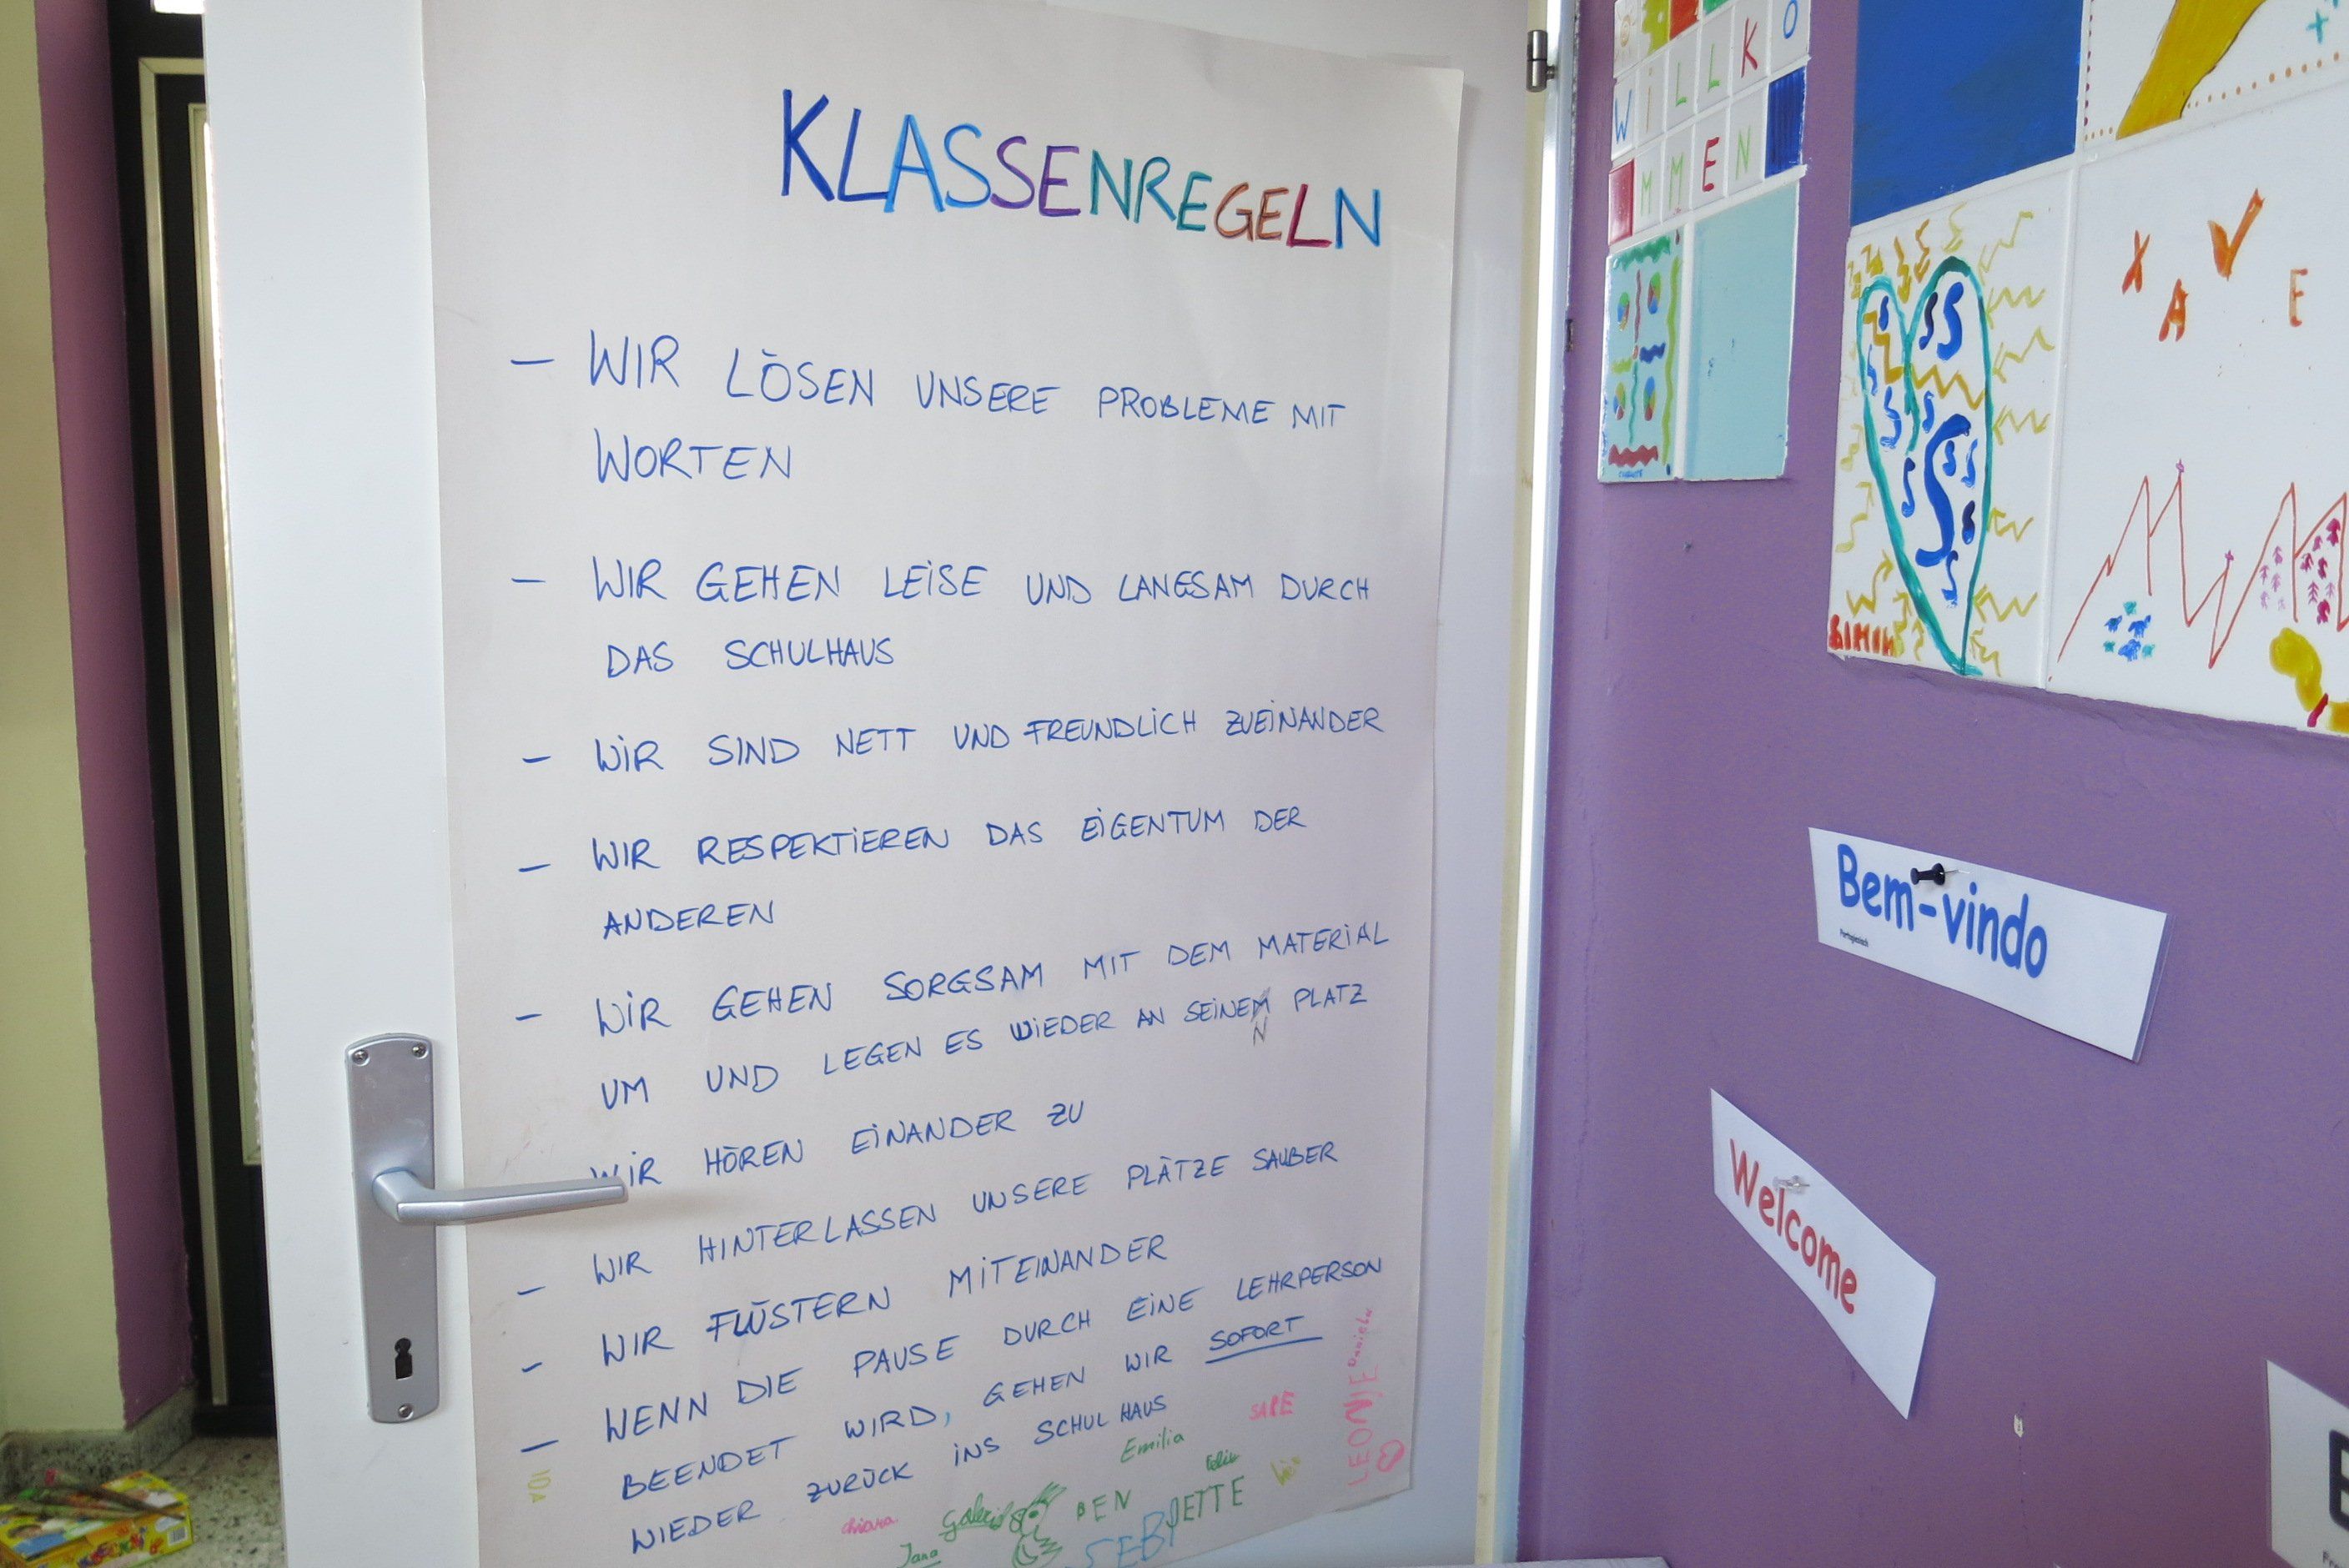 KLASSENREGELN
– WIR LÖSEN UNSERE PROBLEME MIT
WORTEN
– WIR GEHEN LEISE UND LANGSAM DURCH
DAS SCHULHAUS
– WIR SIND NETT UND FREUNDLICH ZUEINANDER
– WIR RESPEKTIEREN DAS EIGENTUM DER
ANDEREN
– WIR GEHEN SORGSAM MIT DEM MATERIAL
UM UND LEGEN ES WIEDER AN SEINEN PLATZ
WIR HÖREN EINANDER ZU
– WIR HINTERLASSEN UNSERE PLÄTZE SAUBER
– WIR FLÜSTERN MITEINANDER
– WENN DIE PAUSE DURCH EINE LEHRPERSON
BEENDET WIRD, GEHEN WIR SOFORT
WIEDER ZURÜCK INS SCHULHAUS
IDA
chiara
Jana
BEN
Emilia
JETTE
SEBI
LEONIE
WILLKO
MMEN
X A E
Bem-vindo
Portugiesisch
Welcome